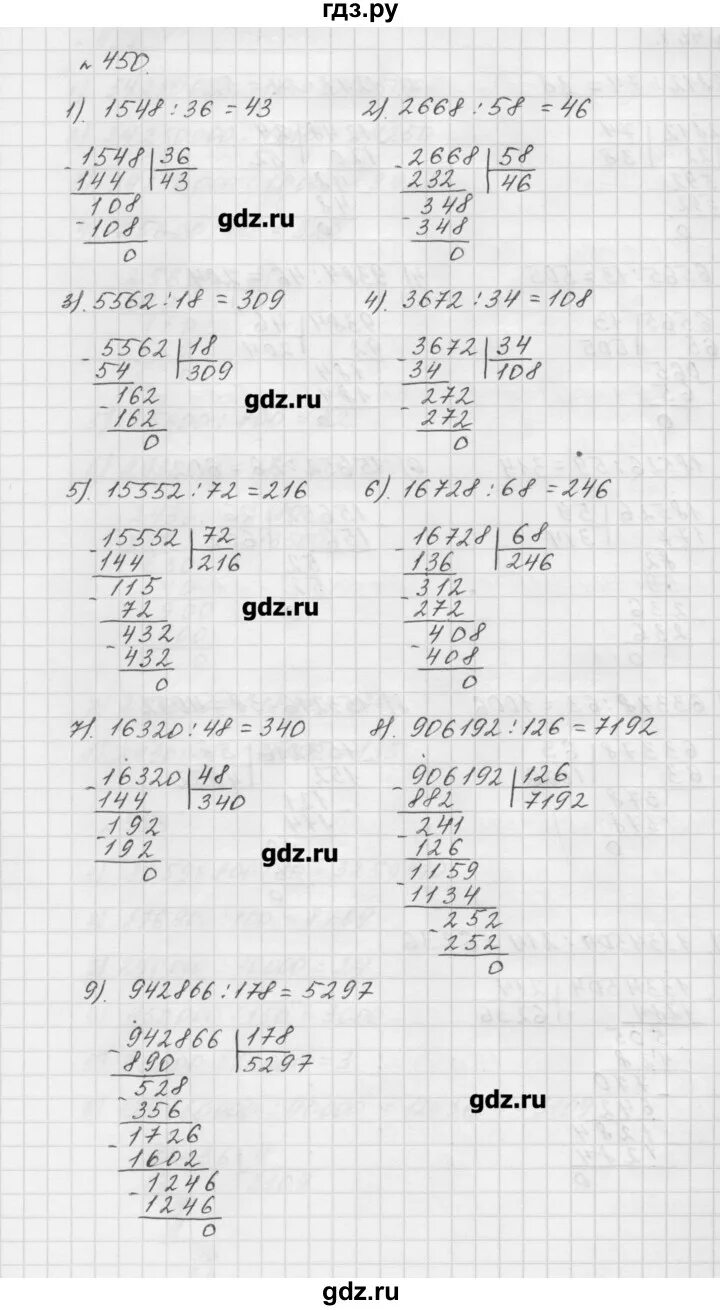 гдз.ру
№ 450.
1). 1548 : 36 = 43
2). 2668 : 58 = 46
- 1548 | 36
144 | 43
- 108
108
0
- 2668 | 58
232 | 46
- 348
348
0
gdz.ru
3). 5562 : 18 = 309
4). 3672 : 34 = 108
- 5562 | 18
54 | 309
- 162
162
0
- 3672 | 34
34 | 108
- 272
272
0
gdz.ru
5). 15552 : 72 = 216
6). 16728 : 68 = 246
- 15552 | 72
144 | 216
- 115
72
- 432
432
0
- 16728 | 68
136 | 246
- 312
272
- 408
408
0
gdz.ru
7). 16320 : 48 = 340
8). 906192 : 126 = 7192
- 16320 | 48
144 | 340
- 192
192
0
- 906192 | 126
882 | 7192
- 241
126
- 1159
1134
- 252
252
0
gdz.ru
9). 942866 : 178 = 5297
- 942866 | 178
890 | 5297
- 528
356
- 1726
1602
- 1246
1246
0
gdz.ru
gdz.ru